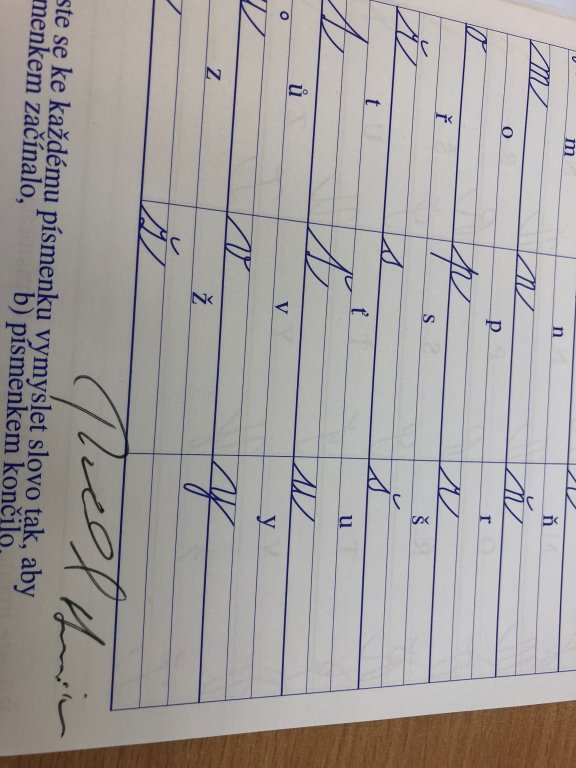 m n ň
m n ň
o p r
o p r
ř s š
ř s š
t ť u
t ť u
ů v y
ů v y
z ž
z ž
se ke každému písmenku vymyslet slovo tak, aby
začínalo, b) písmenkem končilo.